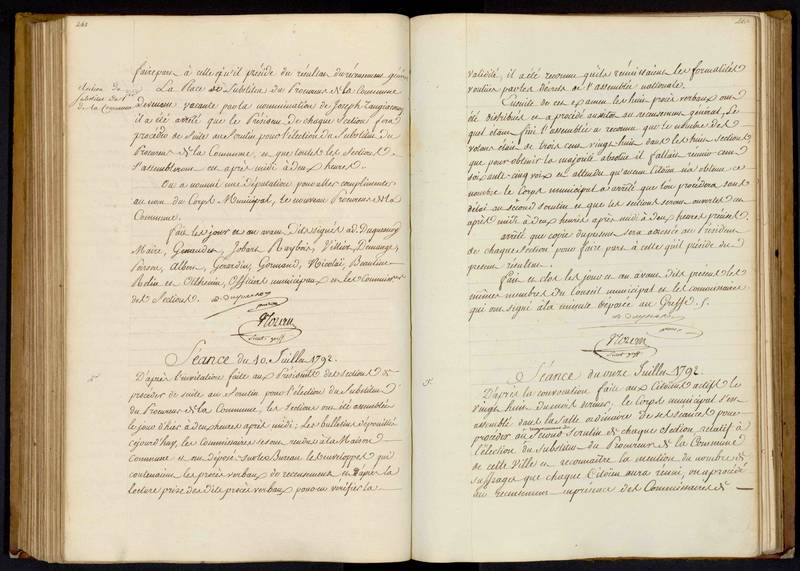 faire part à celle qu'il préside du résultat du recensement général
Election du
substitut du P.
de la Commune
La Place de Substitut du Procureur de la Commune
devenant vacante par la nomination de Joseph
il a été arrêté que le Président de chaque Section fera
procéder de suite au Scrutin pour l'élection du Substitut du
Procureur de la Commune, et que toutes les Sections
s'assembleront cet après midi à deux heures.
On a nommé une députation pour aller complimenter
au nom du Corps Municipal, le nouveau Procureur de la
Commune.
Fait les jour et an avant dits signés ad. Duquesnoy
Maire, Genaudet, Jobart, Raybois, Villiez, Demange,
Poirson, Albert, Gérardin, Gormand, Nicolaï, Beaulieu
Rolin et Othenin, Officiers municipaux et les Commissaires
des Sections. A. Duquesnoy
maire
Séance du 10. Juillet 1792.
D'après l'invitation faite aux Présidents des sections de
procéder de suite au Scrutin pour l'élection du Substitut
du Procureur de la Commune, les Sections ont été assemblées
le jour d'hier à deux heures après midi; les bulletins dépouillés
cejourd'huy, les Commissaires se sont rendus à la Maison
commune et ont déposé sur le Bureau les enveloppes qui
contenaient les procès verbaux de recensement et d'après la
lecture prise des dits procès verbaux pour en vérifier la
validité, il a été reconnu qu'ils réunissaient les formalités
voulues par les décrets de l'assemblée nationale.
Ensuite de cet examen les huit procès verbaux ont
été distribués et a procédé au recensement général, Le
quel étant fait l'assemblée a reconnu que le nombre des
votans était de trois cent vingt huit dans les huit sections
que pour obtenir la majorité absolue il fallait réunir cent
soixante cinq voix et attendu qu'aucun Citoïen n'a obtenu ce
nombre le Corps municipal a arrêté que l'on procédera sans
délai au second scrutin et que les sections seront ouvertes cet
après midi à deux heures après midi à deux heures précises.
arrêté que copie du présent sera adressée au Président
de chaque section pour faire part à celle qu'il préside du
présent résultat.
Fait et clos les jour et an avant dits présents les
mêmes membres du Conseil municipal et les commissaires
qui ont signé à la minute déposée au Greffe.
A. Duquesnoy
maire
Séance du onze Juillet 1792.
D'après la convocation faite aux Citoïens actifs le
vingt huit du mois dernier, le Corps municipal s'est
assemblé dans la Salle ordinaire de ses séances pour
procéder au second Scrutin de chaque Section relatif à
l'élection du Substitut du Procureur de la Commune
de cette Ville et reconnaître la mention du nombre de
suffrages que chaque Citoïen aura réuni, on a procédé
au recensement en présence des Commissaires de